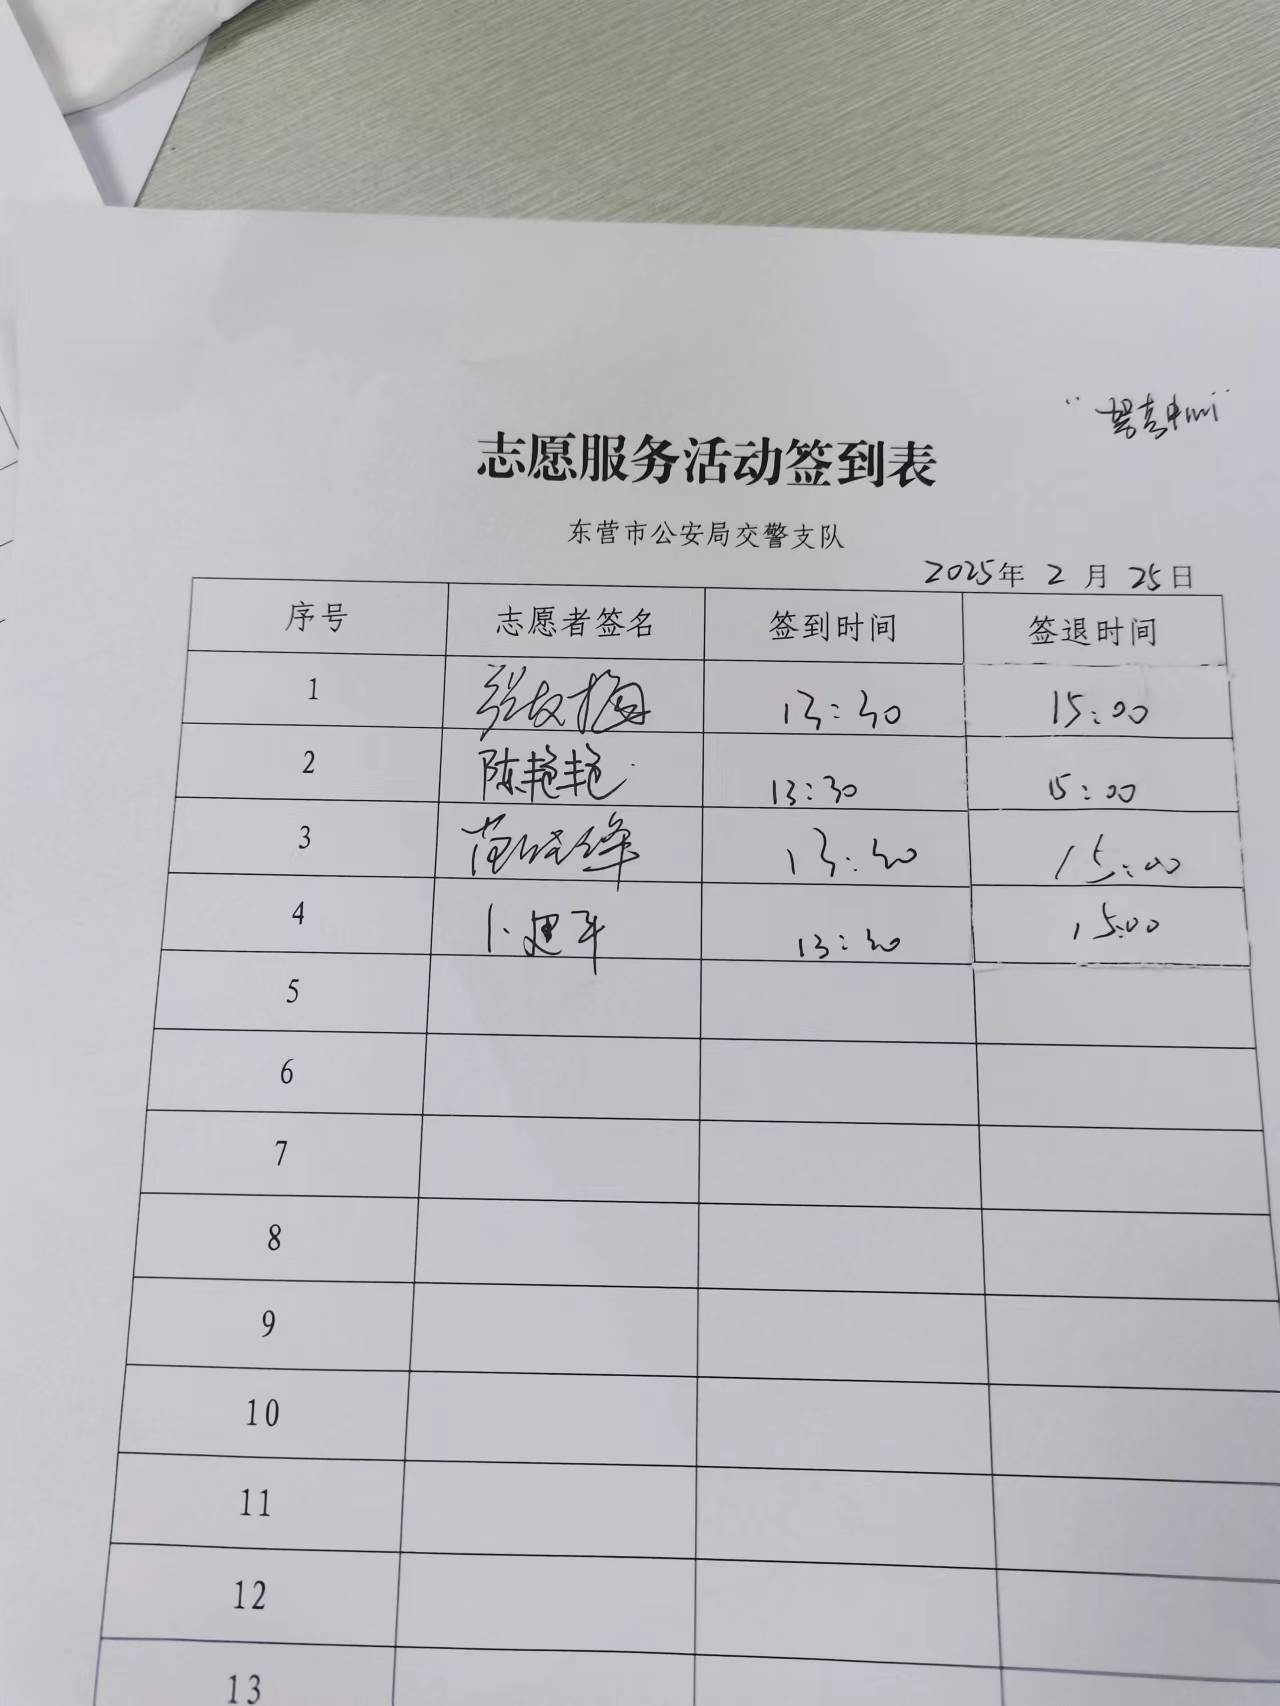 志愿服务活动签到表
东营市公安局交警支队
2025年 2 月 25日
序号 志愿者签名 签到时间 签退时间
1 13:30 15:00
2 陈艳艳 13:30 15:00
3 范 13:30 15:00
4 卜 13:30 15:00
5
6
7
8
9
10
11
12
13